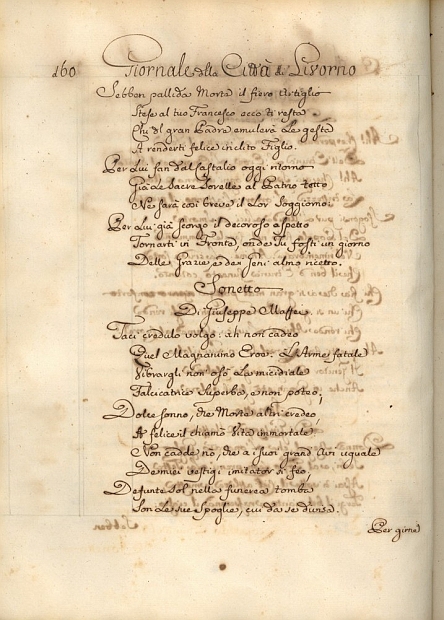 160 Giornale della Città di Livorno
Sebben pallida Morte il fiero Artiglio
Stese al tuo Francesco ecco ti resta
Chi del gran Padre emulerà Le gesta
A renderti felice inclito Figlio.
Per Lui fan dal Castalio oggi ritorno
Già Le Sacre Sorelle al Patrio tetto
Ne sarà così breve il Lor Soggiorno;
Per Lui già scorgo il decoroso aspetto
Tornarti in Fronte, onde Tu fosti un giorno
Delle Grazie, e de Geni almo ricetto.
Sonetto
Di Giuseppe Maffei
Taci credulo volgo: ah non cadeo
Quel Magnanimo Eroe. L'Arme fatale
Vibrargli non osò La micidiale
Falcatrice Superba, e non poteo;
Dolce sonno, che Morte altri credeo
A felice il chiamò Vita immortale
Non cadde no, che a i suoi grand' Avi uguale
De' miei vestigi imitator si feo,
Defunte sol nella funerea tomba
Son Le sue Spoglie, cui da se
Per girne